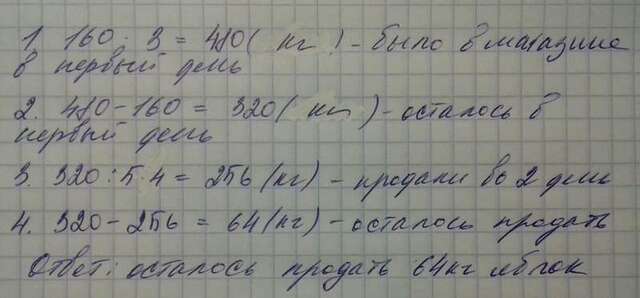 1. 160 · 3 = 480 (кг) - было в магазине
в первый день
2. 480 - 160 = 320 (кг) - осталось в
первый день
3. 320 : 5 · 4 = 256 (кг) - продали во 2 день
4. 320 - 256 = 64 (кг) - осталось продать
Ответ: осталось продать 64кг яблок